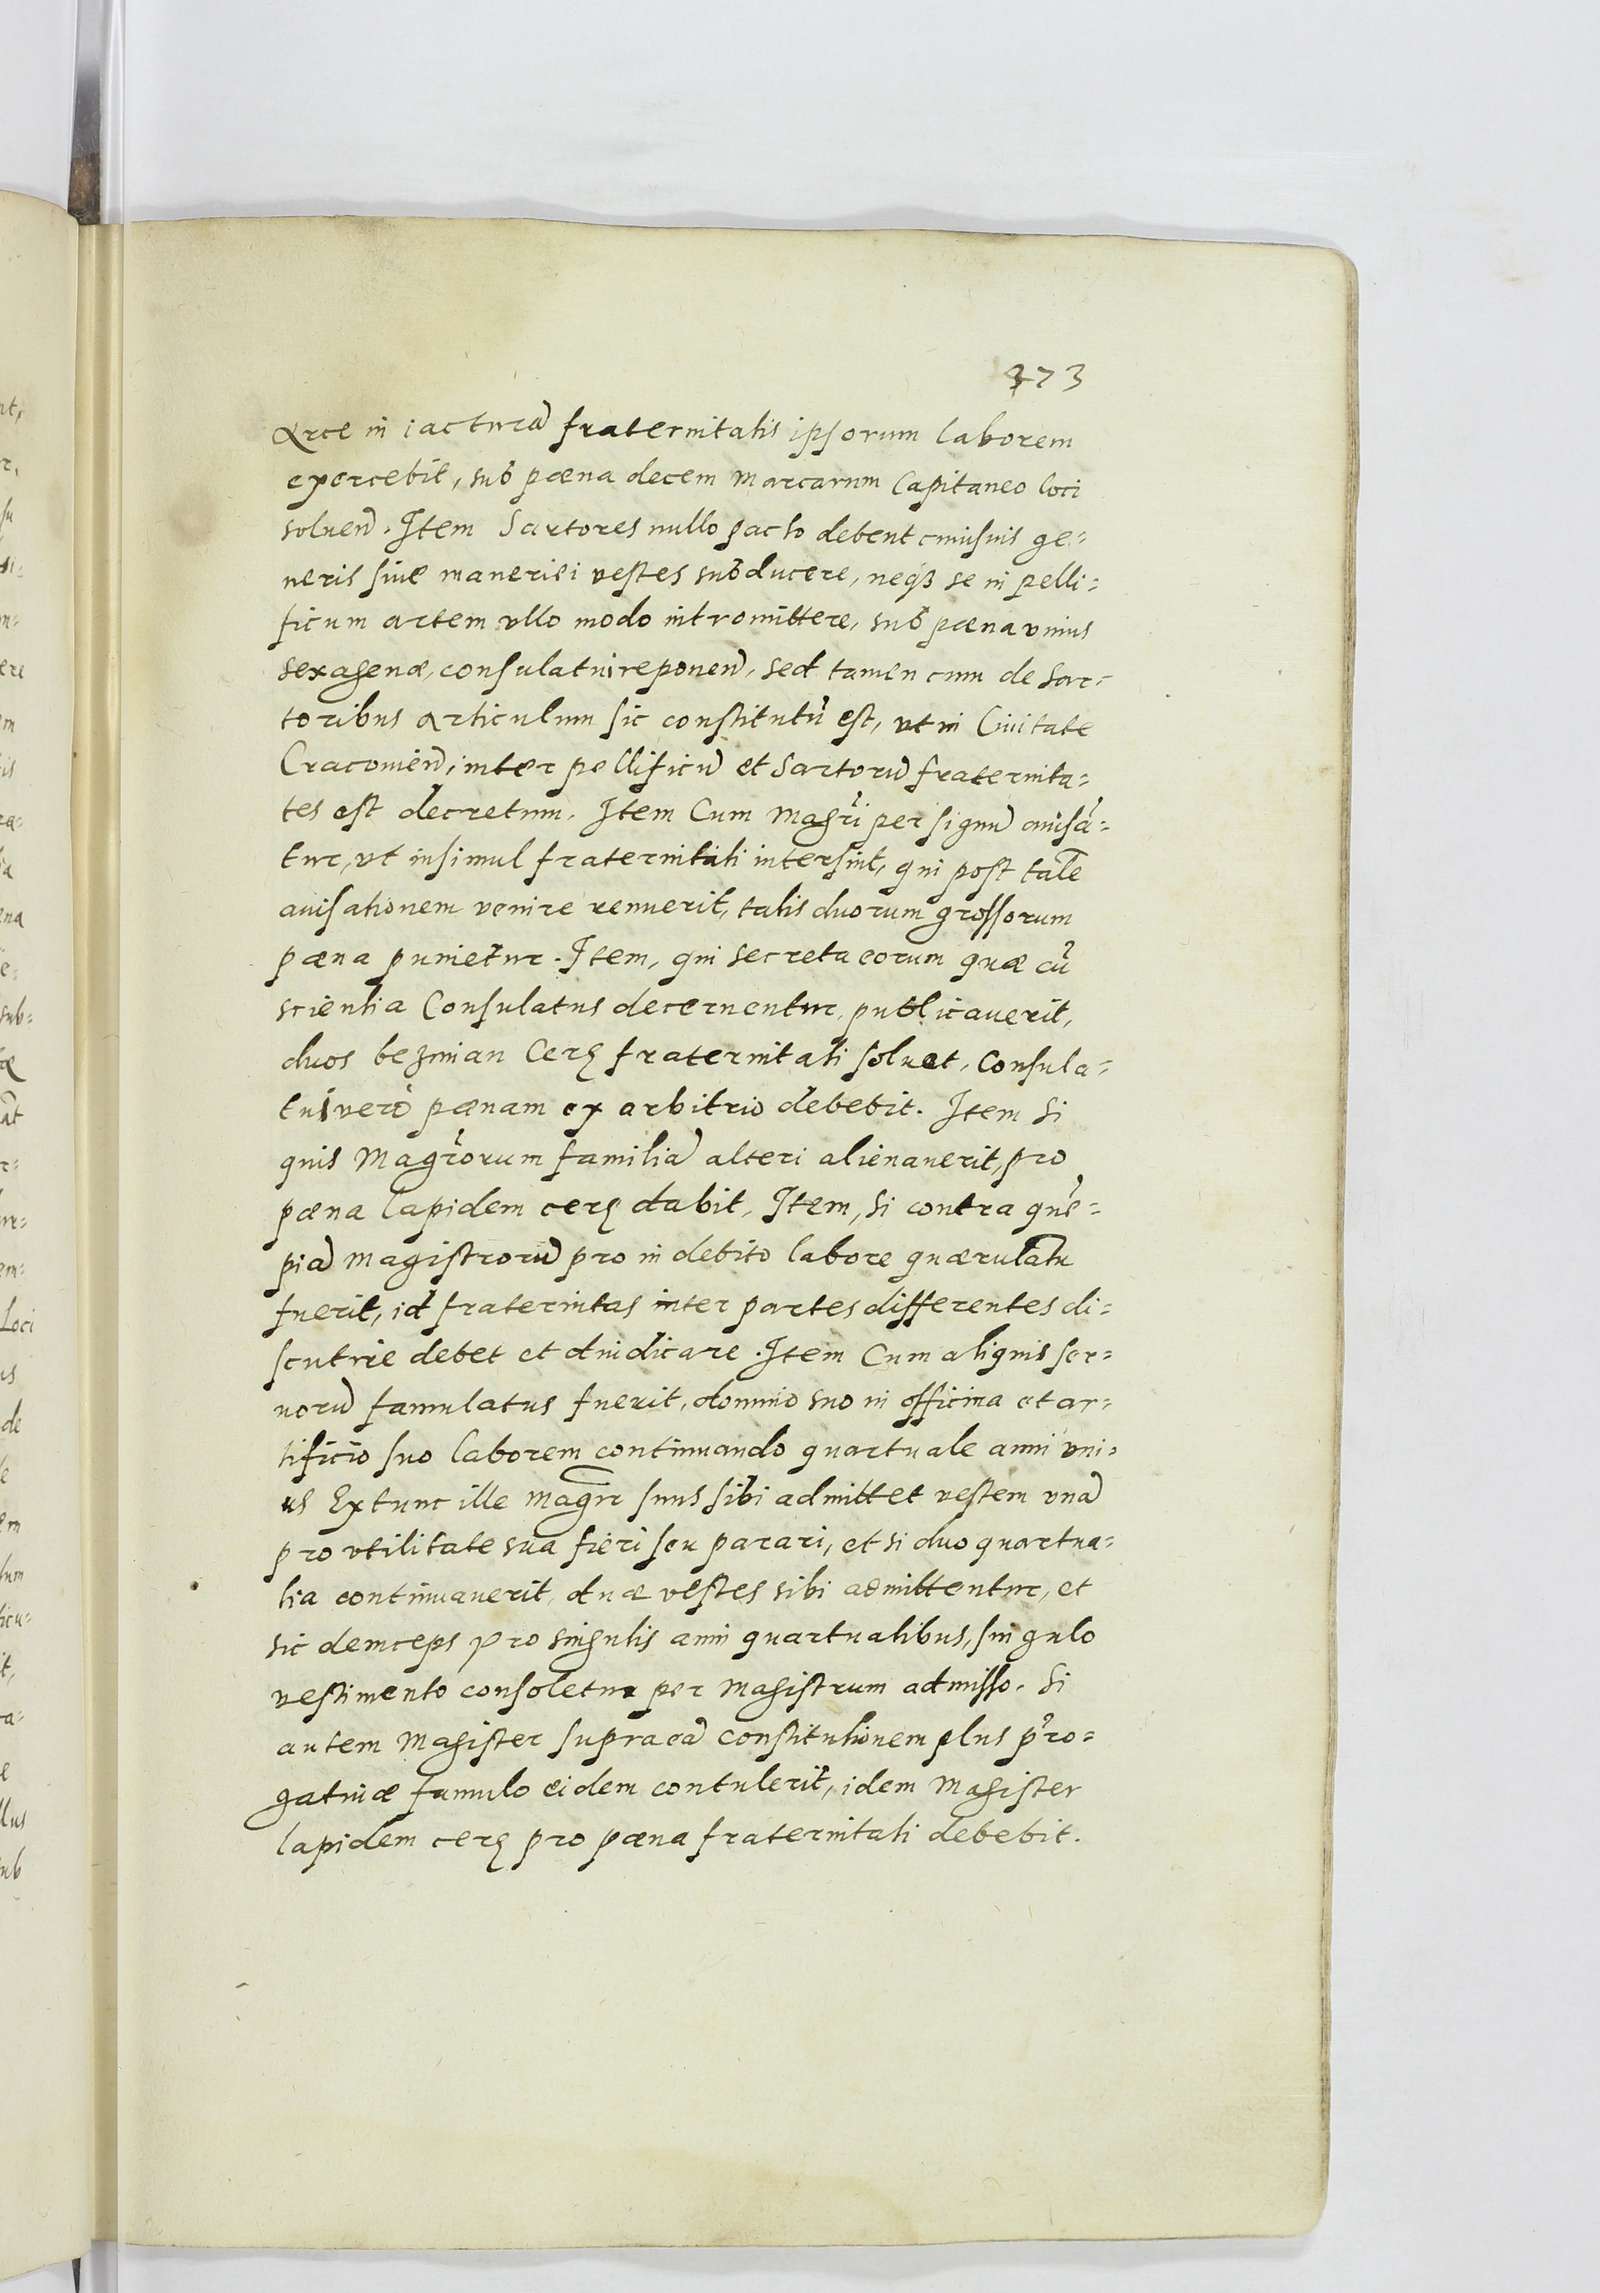 373
Arce in iacturã fraternitatis ipsorum laborem
exercebit, sub pœna decem Marcarum Capitaneo loci
soluen̄. Item Sartores nullo pacto debent cuiusuis ge-
neris siue maneriei vestes subducere, neq₃ se in pelli-
ficum artem vllo modo intromittere, sub pœna vnius
sexagenæ, consulatui reponen̄, sed tamen cum de sar-
toribus Articulum sic constitutũ est, vt in Ciuitate
Cracouien̄, inter pellificũ et Sartorũ fraternita-
tes est decretum. Item Cum Magr̃i per signũ auisã-
tur, vt insimul fraternitati intersint, qui post talẽ
auisationem venire renuerit, talis duorum grossorum
pœna punietur. Item, qui secreta eorum quæ cũ
scientia Consulatus decernentur, publicauerit,
duos bezmian Cerę fraternitati soluet, Consula-
tui verò pœnam ex arbitrio debebit. Item Si
quis Magr̃orum familiã alteri alienauerit, pro
pœna lapidem cerę dabit, Item, si contra quẽ-
piã Magistrorũ pro indebito labore quærulatũ
fuerit, id fraternitas inter partes differentes di-
scutere debet et diiudicare. Item Cum aliquis ser-
uorũ famulatus fuerit, domino suo in officina et ar-
tificio suo laborem continuando quartuale anni vni-
us Extunc ille Magr̃ suus sibi admittet vestem vnã
pro vtilitate sua fieri seu parari, et si duo quartua-
lia continuauerit, duæ vestes sibi admittentur, et
sic deinceps pro singulis anni quartualibus, singulo
vestimento consoletur per Magistrum admisso. Si
autem Magister supra eã constitutionem plus p̃ro-
gatiuæ famulo eidem contulerit, idem Magister
lapidem cerę pro pœna fraternitati debebit.